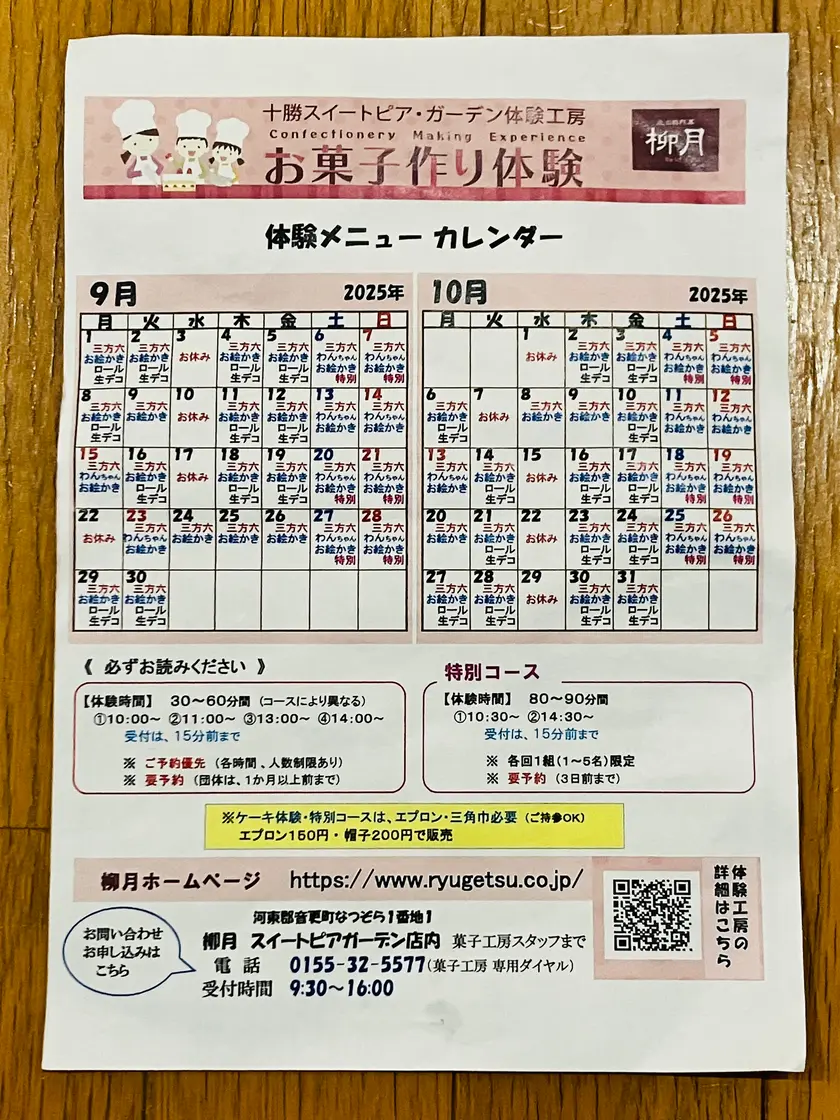 十勝スイートピア・ガーデン体験工房
Confectionery Making Experience
お菓子作り体験
柳月
体験メニュー カレンダー
9月 2025年
月 火 水 木 金 土 日
1 2 3 4 5 6 7
三方六 三方六 お休み 三方六 三方六 三方六 三方六
お絵かき お絵かき お絵かき お絵かき わんちゃん わんちゃん
ロール ロール ロール ロール お絵かき お絵かき
生デコ 生デコ 生デコ 生デコ 特別 特別
8 9 10 11 12 13 14
三方六 三方六 お休み 三方六 三方六 三方六 三方六
お絵かき お絵かき お絵かき お絵かき わんちゃん わんちゃん
ロール ロール ロール お絵かき お絵かき
生デコ 生デコ 生デコ
15 16 17 18 19 20 21
三方六 三方六 お休み 三方六 三方六 三方六 三方六
わんちゃん お絵かき お絵かき お絵かき わんちゃん わんちゃん
お絵かき ロール ロール ロール お絵かき お絵かき
生デコ 生デコ 生デコ 特別 特別
22 23 24 25 26 27 28
お休み 三方六 三方六 三方六 三方六 三方六 三方六
わんちゃん お絵かき お絵かき お絵かき わんちゃん わんちゃん
お絵かき お絵かき お絵かき
特別 特別
29 30
三方六 三方六
お絵かき お絵かき
ロール ロール
生デコ 生デコ
10月 2025年
月 火 水 木 金 土 日
1 2 3 4 5
お休み 三方六 三方六 三方六 三方六
お絵かき お絵かき わんちゃん わんちゃん
ロール ロール お絵かき お絵かき
生デコ 生デコ 特別 特別
6 7 8 9 10 11 12
三方六 お休み 三方六 三方六 三方六 三方六 三方六
お絵かき お絵かき お絵かき お絵かき わんちゃん わんちゃん
ロール ロール お絵かき お絵かき
生デコ 生デコ
13 14 15 16 17 18 19
三方六 三方六 お休み 三方六 三方六 三方六 三方六
わんちゃん お絵かき お絵かき お絵かき わんちゃん わんちゃん
お絵かき ロール ロール ロール お絵かき お絵かき
生デコ 生デコ 生デコ 特別 特別
20 21 22 23 24 25 26
三方六 三方六 お休み 三方六 三方六 三方六 三方六
お絵かき お絵かき お絵かき お絵かき わんちゃん わんちゃん
ロール ロール ロール お絵かき お絵かき
生デコ 生デコ 生デコ 特別 特別
27 28 29 30 31
三方六 三方六 お休み 三方六 三方六
お絵かき お絵かき お絵かき お絵かき
ロール ロール ロール
生デコ 生デコ 生デコ
《 必ずお読みください 》
【体験時間】 30～60分間 (コースにより異なる)
①10:00～ ②11:00～ ③13:00～ ④14:00～
受付は、15分前まで
※ ご予約優先 (各時間、人数制限あり)
※ 要予約 (団体は、1か月以上前まで)
特別コース
【体験時間】 80～90分間
①10:30～ ②14:30～
受付は、15分前まで
※ 各回1組(1～5名)限定
※ 要予約 (3日前まで)
※ケーキ体験・特別コースは、エプロン・三角巾必要 (ご持参OK)
エプロン150円・帽子200円で販売
柳月ホームページ https://www.ryugetsu.co.jp/
体験工房の
詳細はこちら
お問い合わせ
お申し込みは
こちら
河東郡音更町なつぞら1番地1
柳月 スイートピアガーデン店内 菓子工房スタッフまで
電話 0155-32-5577(菓子工房 専用ダイヤル)
受付時間 9:30～16:00